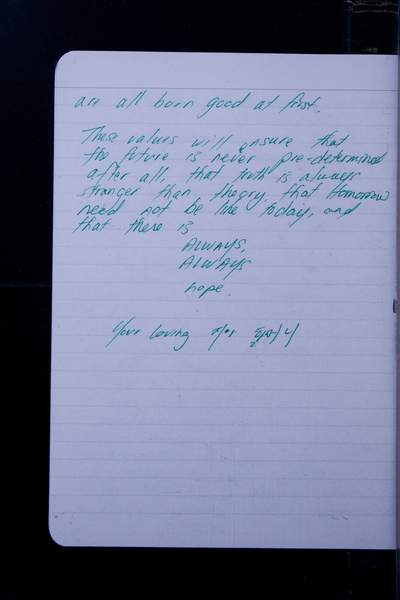 are all born good at first.
These values will ensure that
the future is never pre-determined
after all, that truth is always
stranger than theory, that tomorrow
need not be like today, and
that there is
ALWAYS,
ALWAYS
hope.
Your loving